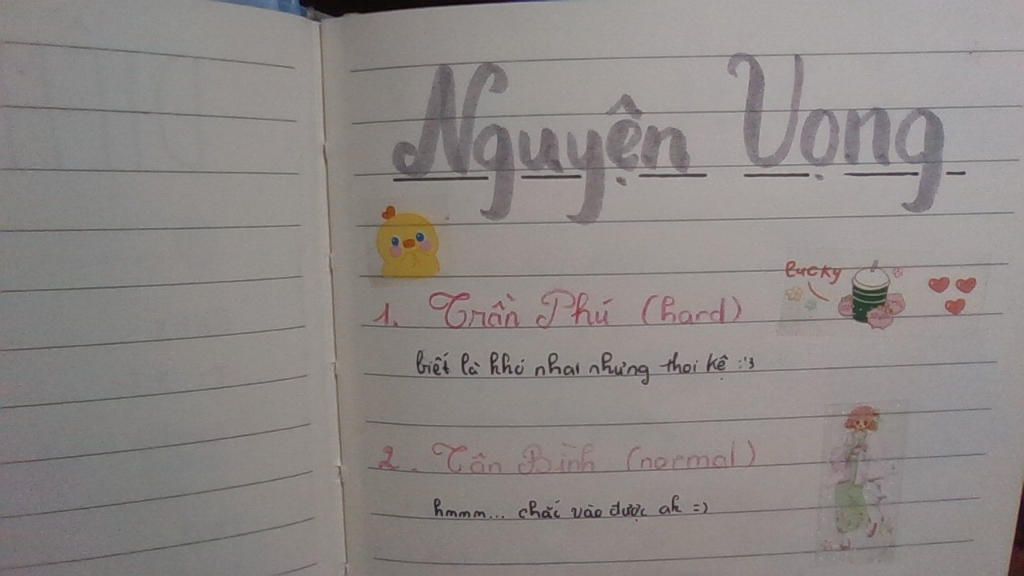 Nguyện Vọng
lucky
1. Trần Phú (hard)
biết là khó nhai nhưng thoi kệ :'3
2. Tân Bình (normal)
hmmm... chắc vào được ak =)